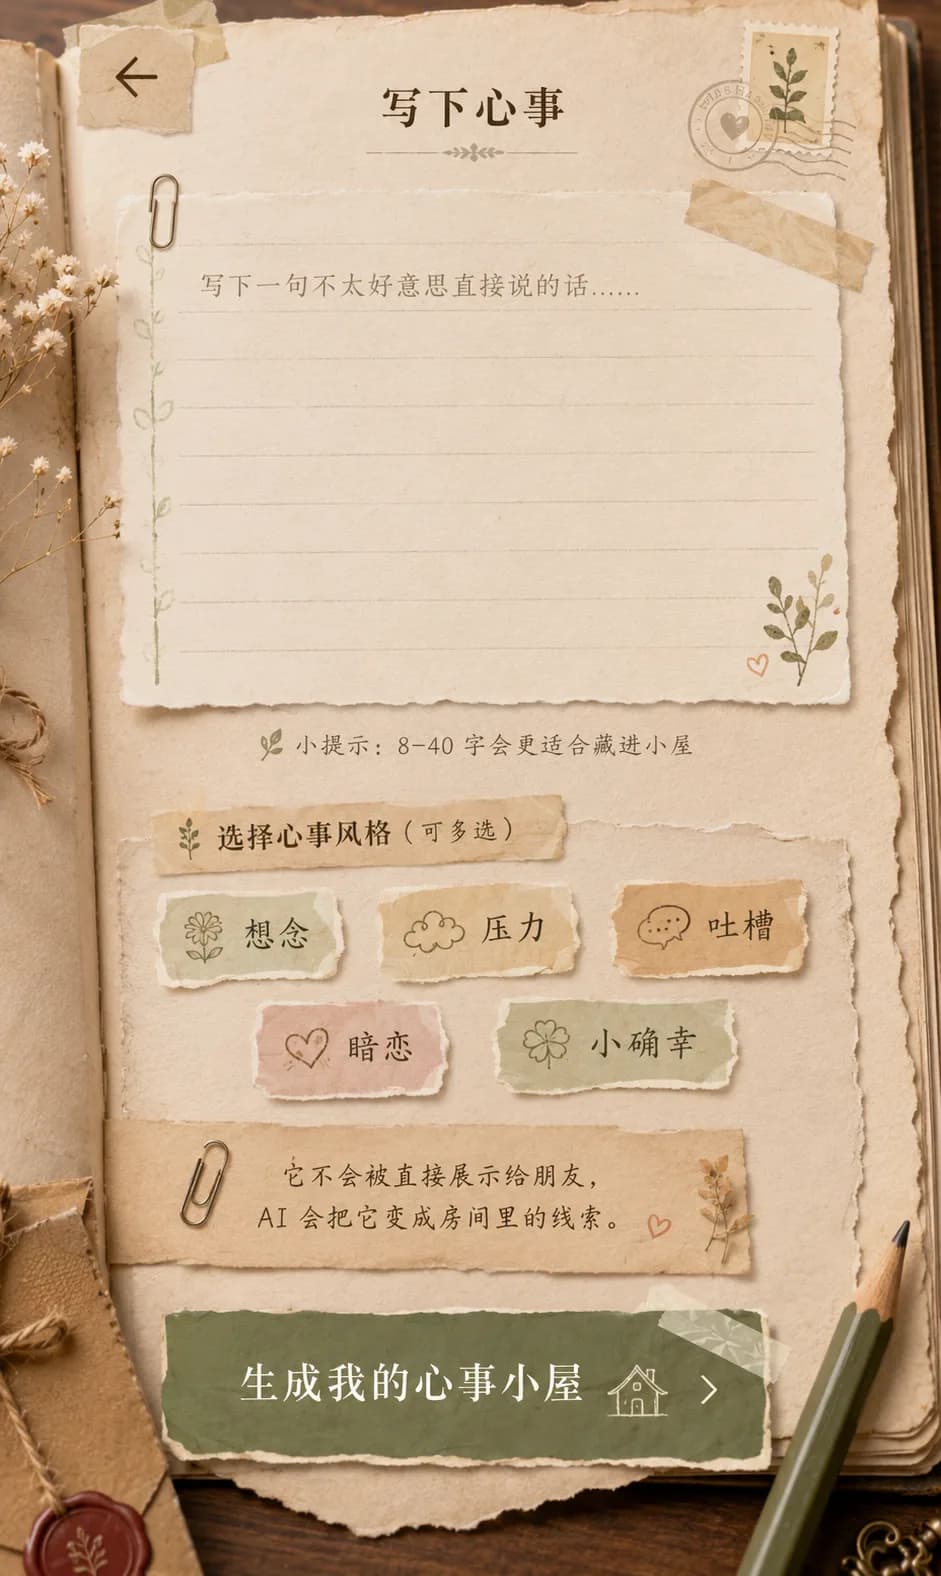 写下心事
写下一句不太好意思直接说的话……
小提示：8-40 字会更适合藏进小屋
选择心事风格（可多选）
想念
压力
吐槽
暗恋
小确幸
它不会被直接展示给朋友，
AI 会把它变成房间里的线索。
生成我的心事小屋